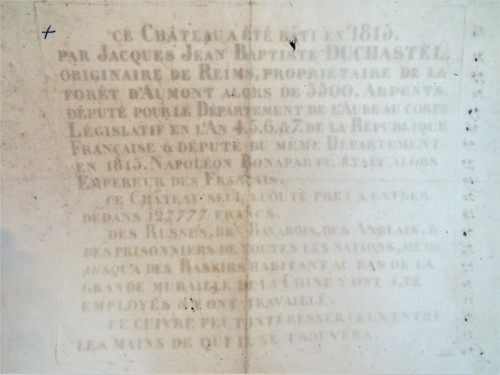 CE CHÂTEAU A ÉTÉ BÂTI EN 1813,
PAR JACQUES JEAN BAPTISTE DUCHASTEL,
ORIGINAIRE DE REIMS, PROPRIÉTAIRE DE LA
FORÊT D'AUMONT ALORS DE 5500, ARPENTS,
DÉPUTÉ POUR LE DÉPARTEMENT DE L'AUBE AU CORPS
LÉGISLATIF EN L'AN 4.5.6.&7. DE LA RÉPUBLIQUE
FRANÇAISE & DÉPUTÉ DU MÊME DÉPARTEMENT,
EN 1813. NAPOLÉON BONAPARTE ÉTAIT ALORS
EMPEREUR DES FRANÇAIS.
CE CHÂTEAU SEUL A COÛTÉ PRÊT À ENTRER
DEDANS 127777 FRANCS.
DES RUSSES, DES BAVAROIS, DES ANGLAIS, &
DES PRISONNIERS DE TOUTES LES NATIONS, MÊME
JUSQU'À DES BASKIRS HABITANT AU BAS DE LA
GRANDE MURAILLE DE LA CHINE Y ONT ÉTÉ
EMPLOYÉS & Y ONT TRAVAILLÉ.
CE CUIVRE PEUT INTÉRESSER CEUX ENTRE
LES MAINS DE QUI IL SE TROUVERA.